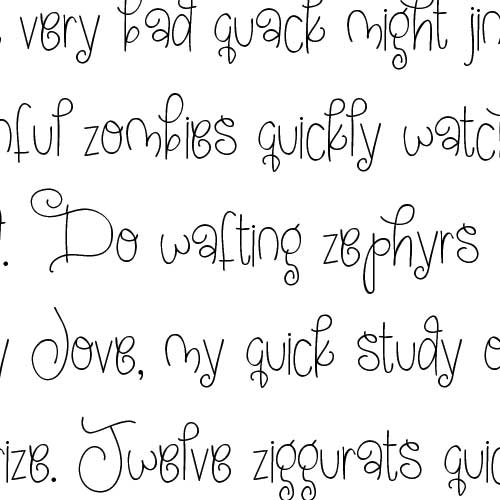 very bad quack might jin
nful zombies quickly watc
t. Do wafting zephyrs
y Jove, my quick study o
rize. Twelve ziggurats quic